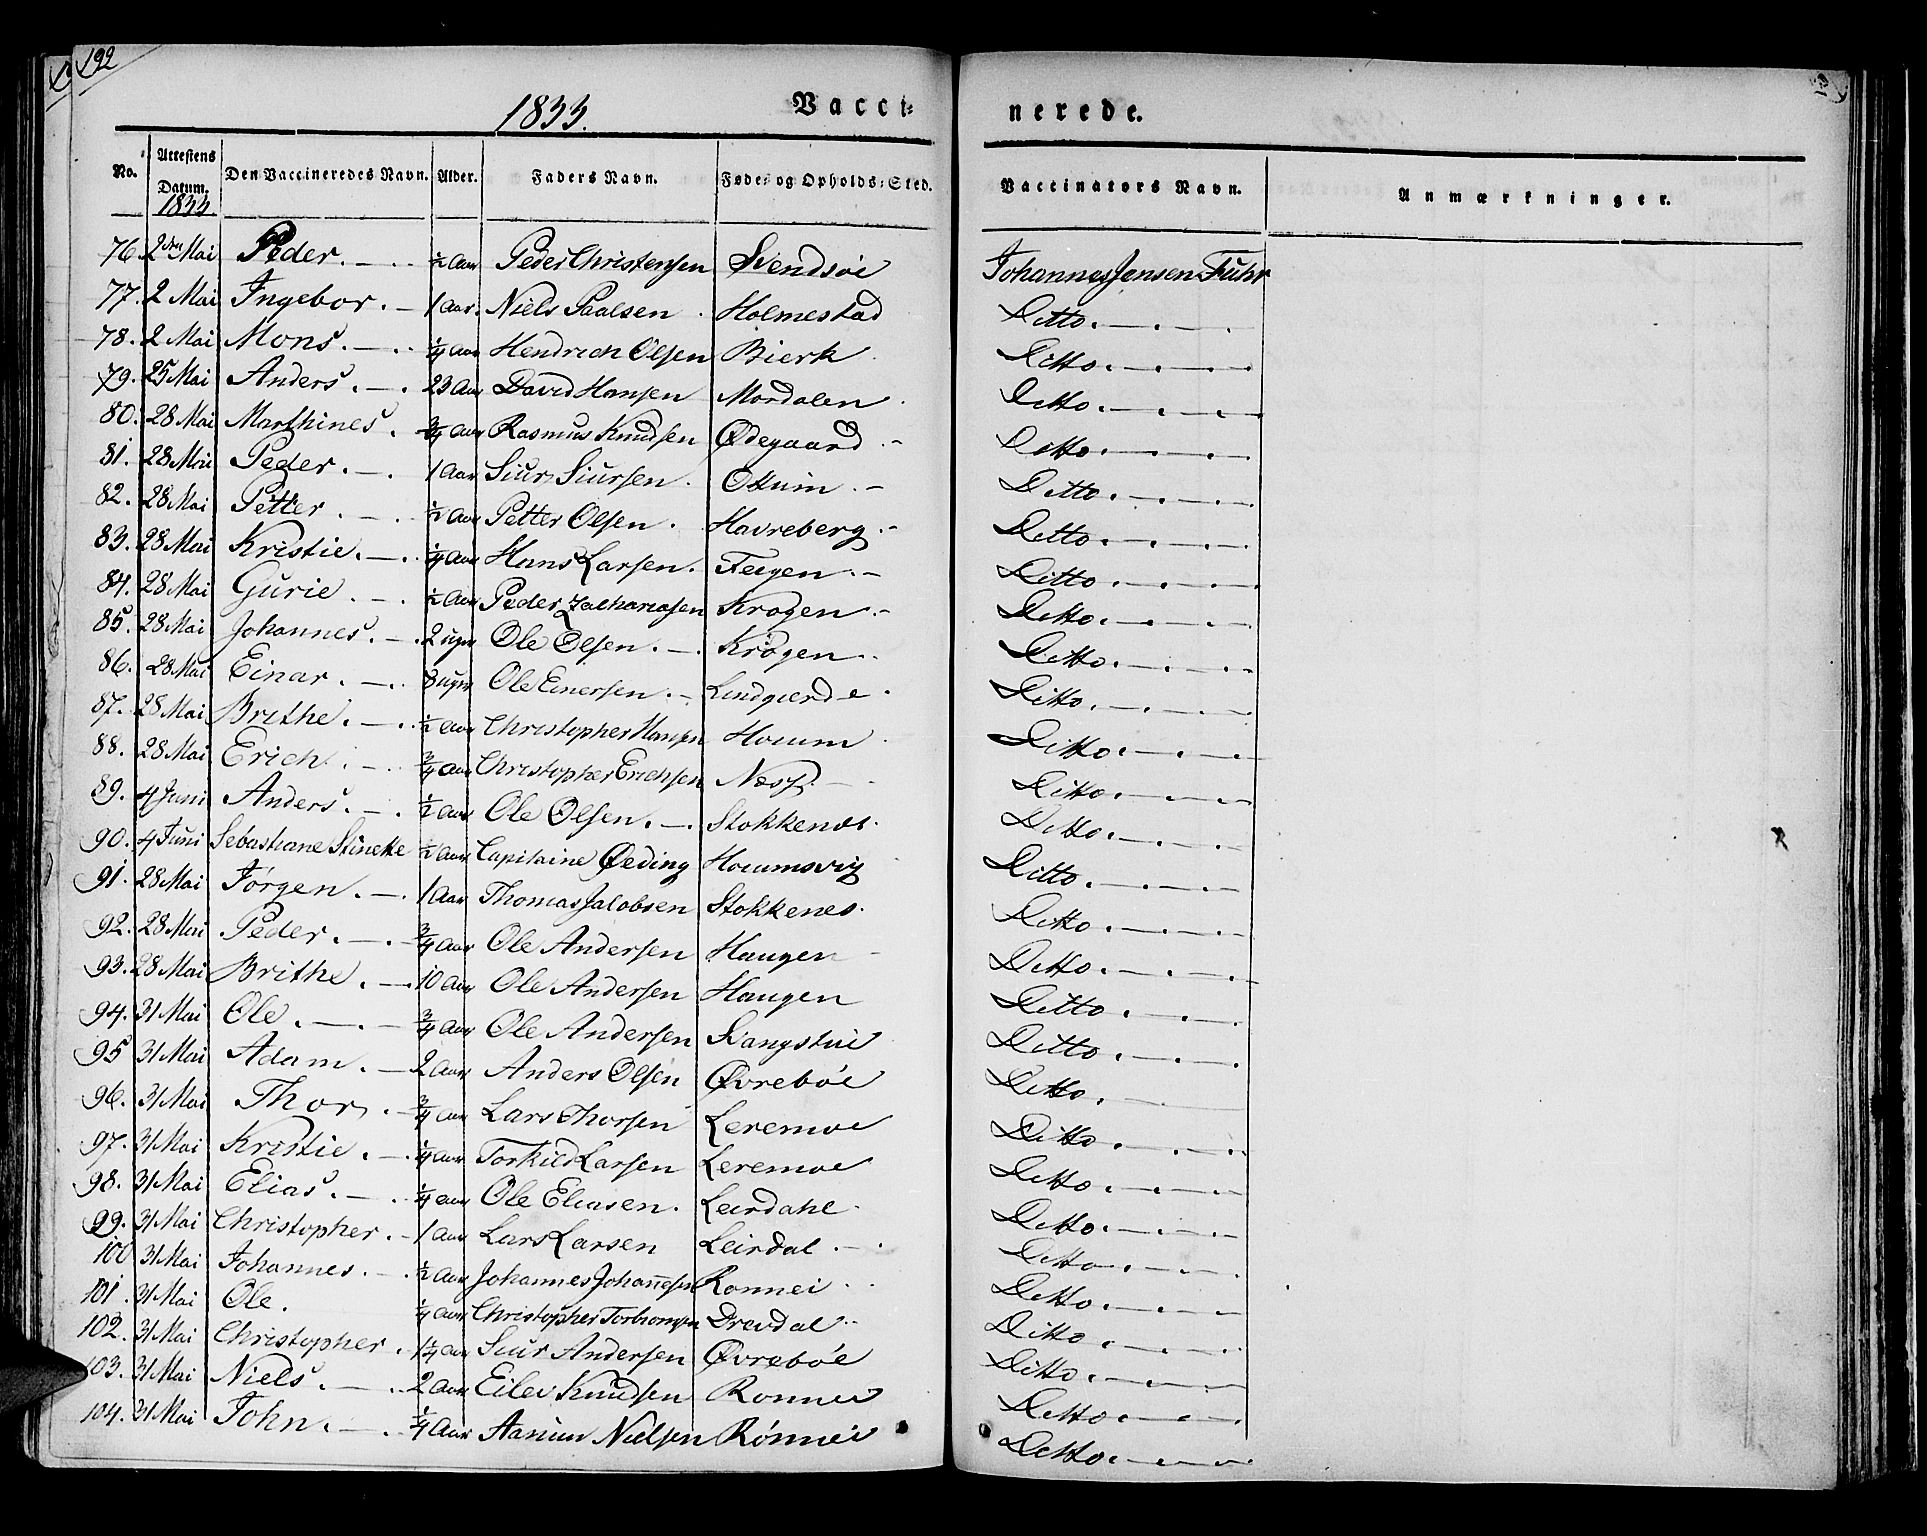 192
1833.
Vacci-
nerede.
No. Attestens Datum. Den Vaccineredes Navn. Alder. Faders Navn. Føde- og Opholds-Sted. Vaccinators Navn. Anmærkninger.
1833
76 2den Mai Peder. ½ Aar Peder Christensen Svendsøe Johannes Jensen Fuhr
77. 2 Mai Ingebor. 1 Aar. Niels Paalsen Holmestad Ditto.
78. 2 Mai Mons. ¼ Aar Hendrich Olsen Bierk Ditto.
79. 25 Mai Anders. 23 Aar David Hansen Mordalen Ditto.
80. 28 Mai Marthines. ¾ Aar Rasmus Knudsen Ødegaard Ditto.
81. 28 Mai Peder. 1 Aar Siur Siursen. Ottum Ditto.
82. 28 Mai Petter. ½ Aar Petter Olsen. Havreberg Ditto.
83. 28 Mai Kristie. ¼ Aar Hans Larsen. Feigen Ditto.
84. 28 Mai Gurie. ½ Aar Peder Zachariasen Krogen Ditto.
85. 28 Mai Johannes. 2 uger Ole Olsen. Krogen Ditto.
86. 28 Mai Einar. 8 uger Ole Einersen. Lindgierde Ditto.
87. 28 Mai Brithe. ½ Aar Christopher Hansen Houum Ditto.
88. 28 Mai Erich. ¾ Aar Christopher Erichsen Næss. Ditto.
89. 4 Juni Anders. ½ Aar Ole Olsen. Stokkenæs. Ditto.
90. 4 Juni Sebastiane Stineke ½ Aar Capitaine Øeding Houumsvig Ditto.
91. 28 Mai Jørgen. 1 Aar Thomas Jacobsen Stokkenes. Ditto.
92. 28 Mai Peder. ¾ Aar Ole Andersen Haugen Ditto.
93. 28 Mai Brithe. 10 Aar Ole Andersen Haugen Ditto.
94. 31 Mai Ole. ¾ Aar Ole Andersen Svangstue Ditto.
95 31 Mai Adam. 2 Aar Anders Olsen Øvrebøe Ditto.
96. 31 Mai Thor. ¾ Aar Lars Thorsen Leremoe Ditto.
97. 31 Mai Kristie. ¼ Aar Torkild Larsen Leremoe Ditto.
98. 31 Mai Elias. ¼ Aar Ole Eliasen. Leirdahl. Ditto.
99. 31 Mai Christopher. 1 Aar Lars Larsen Leirdal. Ditto.
100 31 Mai Johannes. ½ Aar Johannes Johannesen Ronnei Ditto.
101. 31 Mai Ole. ¼ Aar Christopher Torbionsen Drevdal Ditto.
102. 31 Mai Christopher. 1¼ Aar Siur Andersen Øvrebøe Ditto.
103. 31 Mai Niels. 2 Aar Eilev Knudsen Ronnei Ditto.
104. 31 Mai John. ¼ Aar Aamun Nielsen Rønnei Ditto.